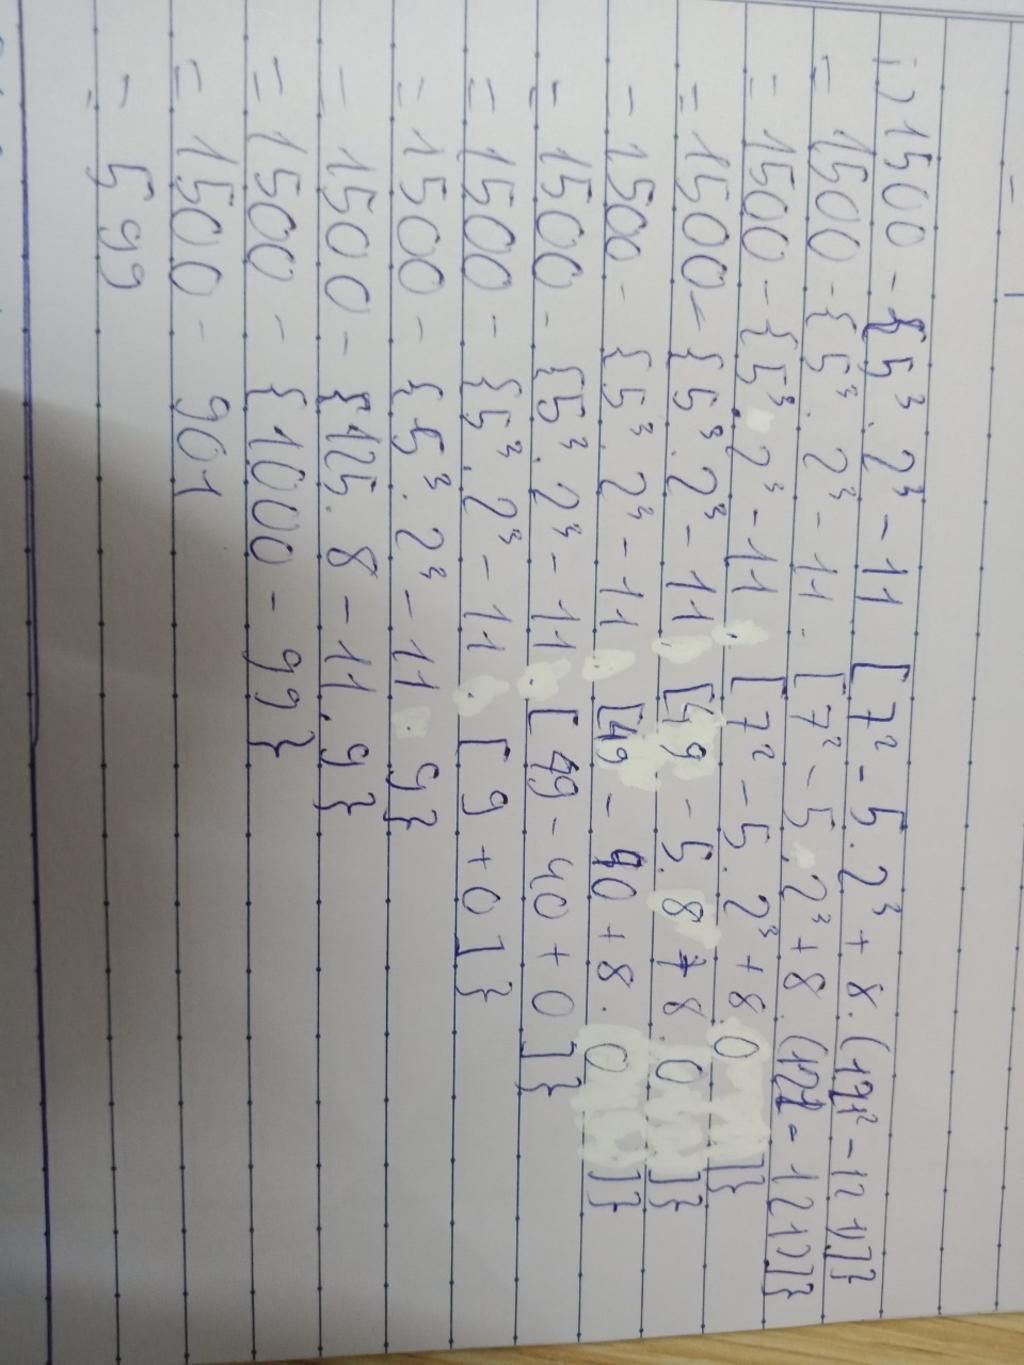 i) 1500 - {5³. 2³ - 11 [7² - 5. 2³ + 8. (11² - 121)]}
= 1500 - {5³. 2³ - 11. [7² - 5. 2³ + 8. (121 - 121)]}
= 1500 - {5³. 2³ - 11. [7² - 5. 2³ + 8.0]}
= 1500 - {5³. 2³ - 11. [49 - 5. 8 + 8.0]}
= 1500 - {5³. 2³ - 11. [49 - 40 + 8. 0]}
= 1500 - {5³. 2³ - 11. [49 - 40 + 0]}
= 1500 - {5³. 2³ - 11. [9 + 0]}
= 1500 - {5³. 2³ - 11. 9}
= 1500 - {125. 8 - 11. 9}
= 1500 - {1000 - 99}
= 1500 - 901
= 599